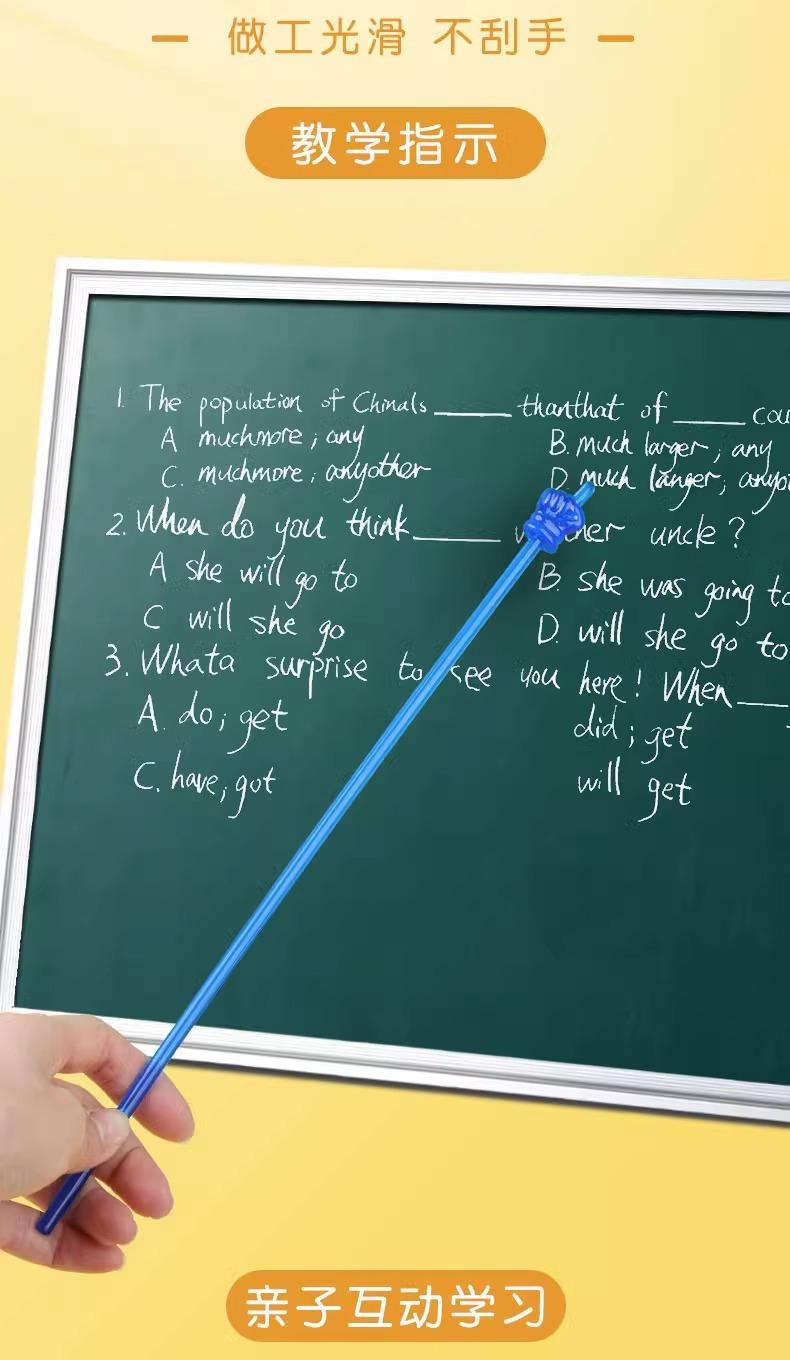 做工光滑 不刮手
教学指示
1. The population of Chinals ____ thanthat of ____
A muchmore; any B. much larger; any
C. muchmore; anyother D. much langer;
2. When do you think ____ uncle?
A she will go to B. she was going to
C will she go D. will she go to
3. Whata surprise to see you here! When ____
A. do; get did; get
C. have; got will get
亲子互动学习